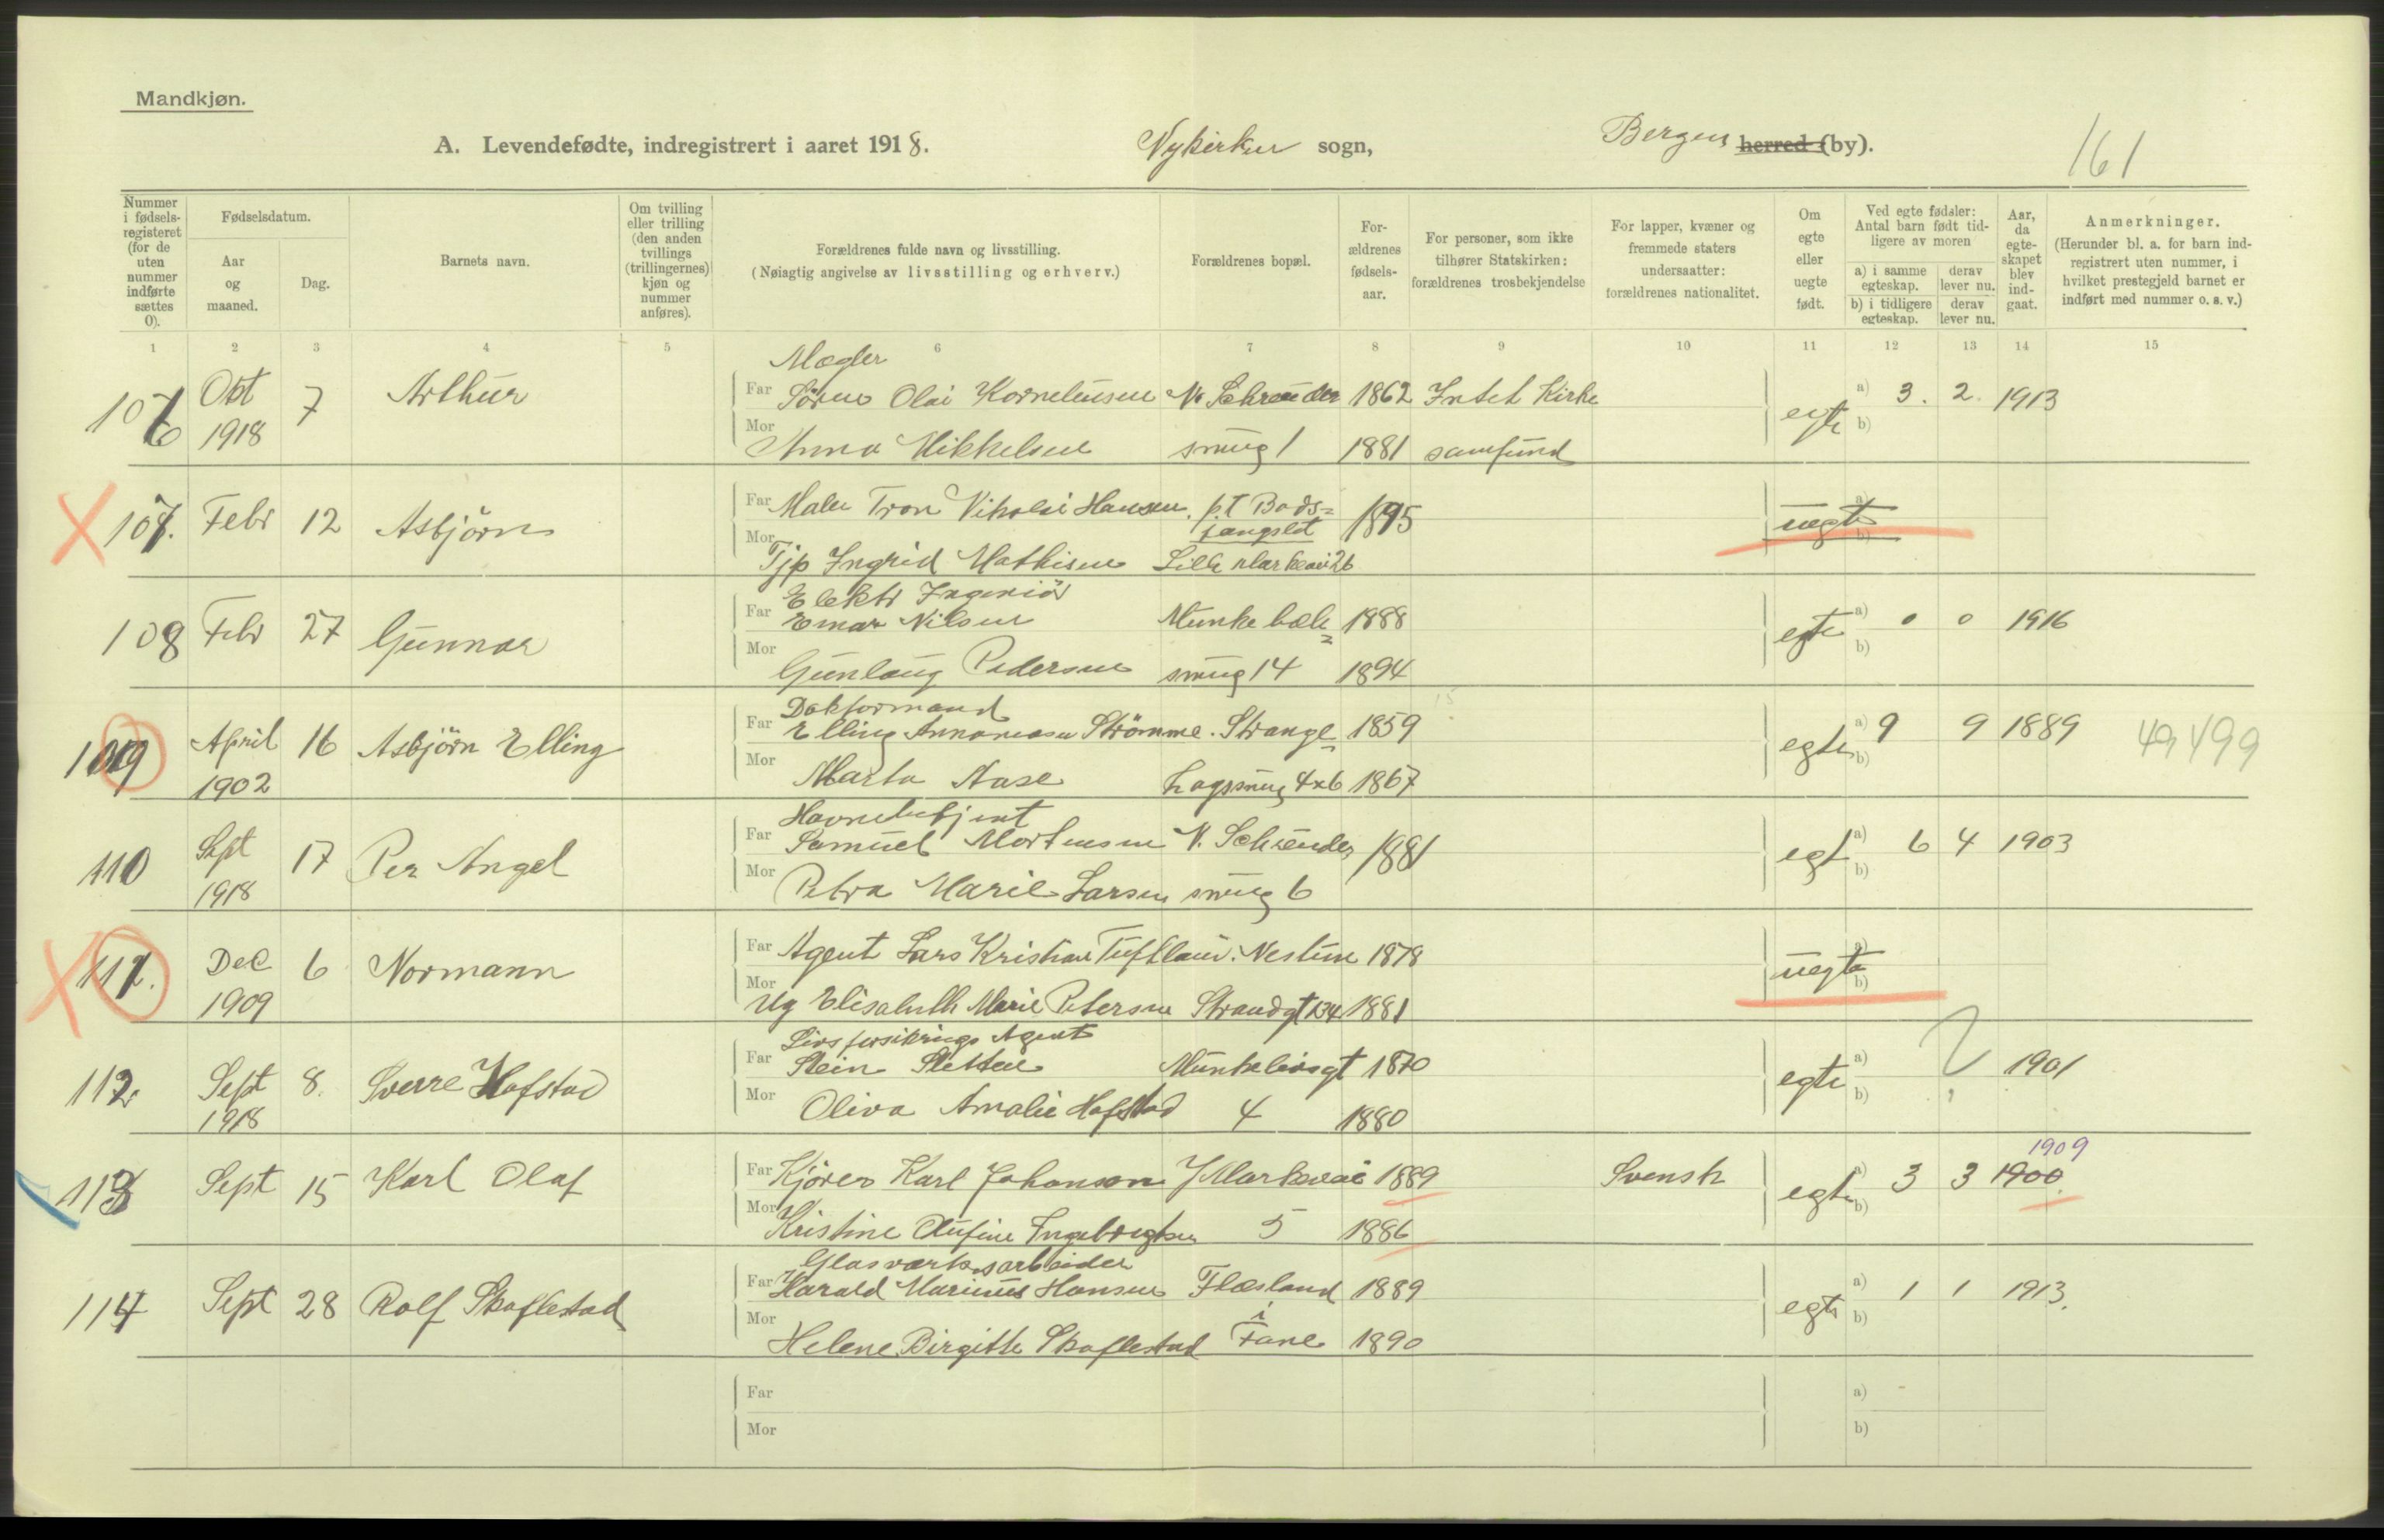 Mandkjøn.
A. Levendefødte, indregistrert i aaret 1918. Nykirken sogn, Bergens herred (by). 161
Nummer i fødsels-registeret (for de uten nummer indførte sættes 0).
Fødselsdatum.
Aar og maaned.
Dag.
Barnets navn.
Om tvilling eller trilling (den anden tvillings (trillingernes) kjøn og nummer anføres).
Forældrenes fulde navn og livsstilling.
(Nøiagtig angivelse av livsstilling og erhverv.)
Forældrenes bopæl.
For-ældrenes fødsels-aar.
For personer, som ikke tilhører Statskirken: forældrenes trosbekjendelse
For lapper, kvæner og fremmede staters undersaatter: forældrenes nationalitet.
Om egte eller uegte født.
Ved egte fødsler: Antal barn født tid-ligere av moren
a) i samme egteskap.
derav lever nu.
b) i tidligere egteskap.
derav lever nu.
Aar, da egte-skapet blev ind-gaat.
Anmerkninger.
(Herunder bl. a. for barn ind-registrert uten nummer, i hvilket prestegjeld barnet er indført med nummer o. s. v.)
1 2 3 4 5 6 7 8 9 10 11 12 13 14 15
Mægler
106 Okt 7 Arthur Far Søren Olai Korneliussen N. Schreuder 1862 Intet Kirke egte a) 3. 2. 1913
1918 Mor Anna Mikkelsen smug 1 1881 samfund b)
X 107. Febr 12 Asbjörn Far Maler Tron Nikolai Hansen. p.t Bods= 1895 uegte a)
fængslet
Mor Tjp Ingrid Mathisen Lille Markevei 26 b)
Elektr Ingeniör
108 Febr 27 Gunnar Far Einar Nilsen Munkebæk= 1888 egte a) 0 0 1916
Mor Gunlaug Pedersen smug 14 1894 b)
Dokformand
109 April 16 Asbjörn Elling Far Elling Annanias Strömme. Strange= 1859 egte a) 9 9 1889 49,499
1902 Mor Marta Aase hagsmug 4 1867 b)
Havnebetjent
110 Sept 17 Per Angel Far Samuel Mortensen N. Schreuder 1881 egte a) 6 4 1903
1918 Mor Petra Marie Larsen smug 6 b)
X 111. Dec 6 Normann Far Agent Lars Kristian Tufteland. Nestun 1878 uegte a)
1909 Mor Ug Elisabeth Marie Petersen Strandgt 234 1881 b)
Livsforsikrings Agent
112. Sept 8. Sverre Hofstad Far Stein Sletten Munkelivsgt 1870 egte a) ? 1901
1918 Mor Oliva Amalie Hofstad 4 1880 b)
1909
113 Sept 15 Karl Olaf Far Kjörer Karl Johanson Markevei 1889 Svensk egte a) 3 3 1900.
Mor Kristine Olufine Ingebregtsen 5 1886 b)
Glasværksarbeider
114 Sept 28 Rolf Skaflestad Far Harald Marinus Hansen Flæsland 1889 egte a) 1 1 1913.
i
Mor Helene Birgitte Skaflestad Fane 1890 b)
Far a)
Mor b)